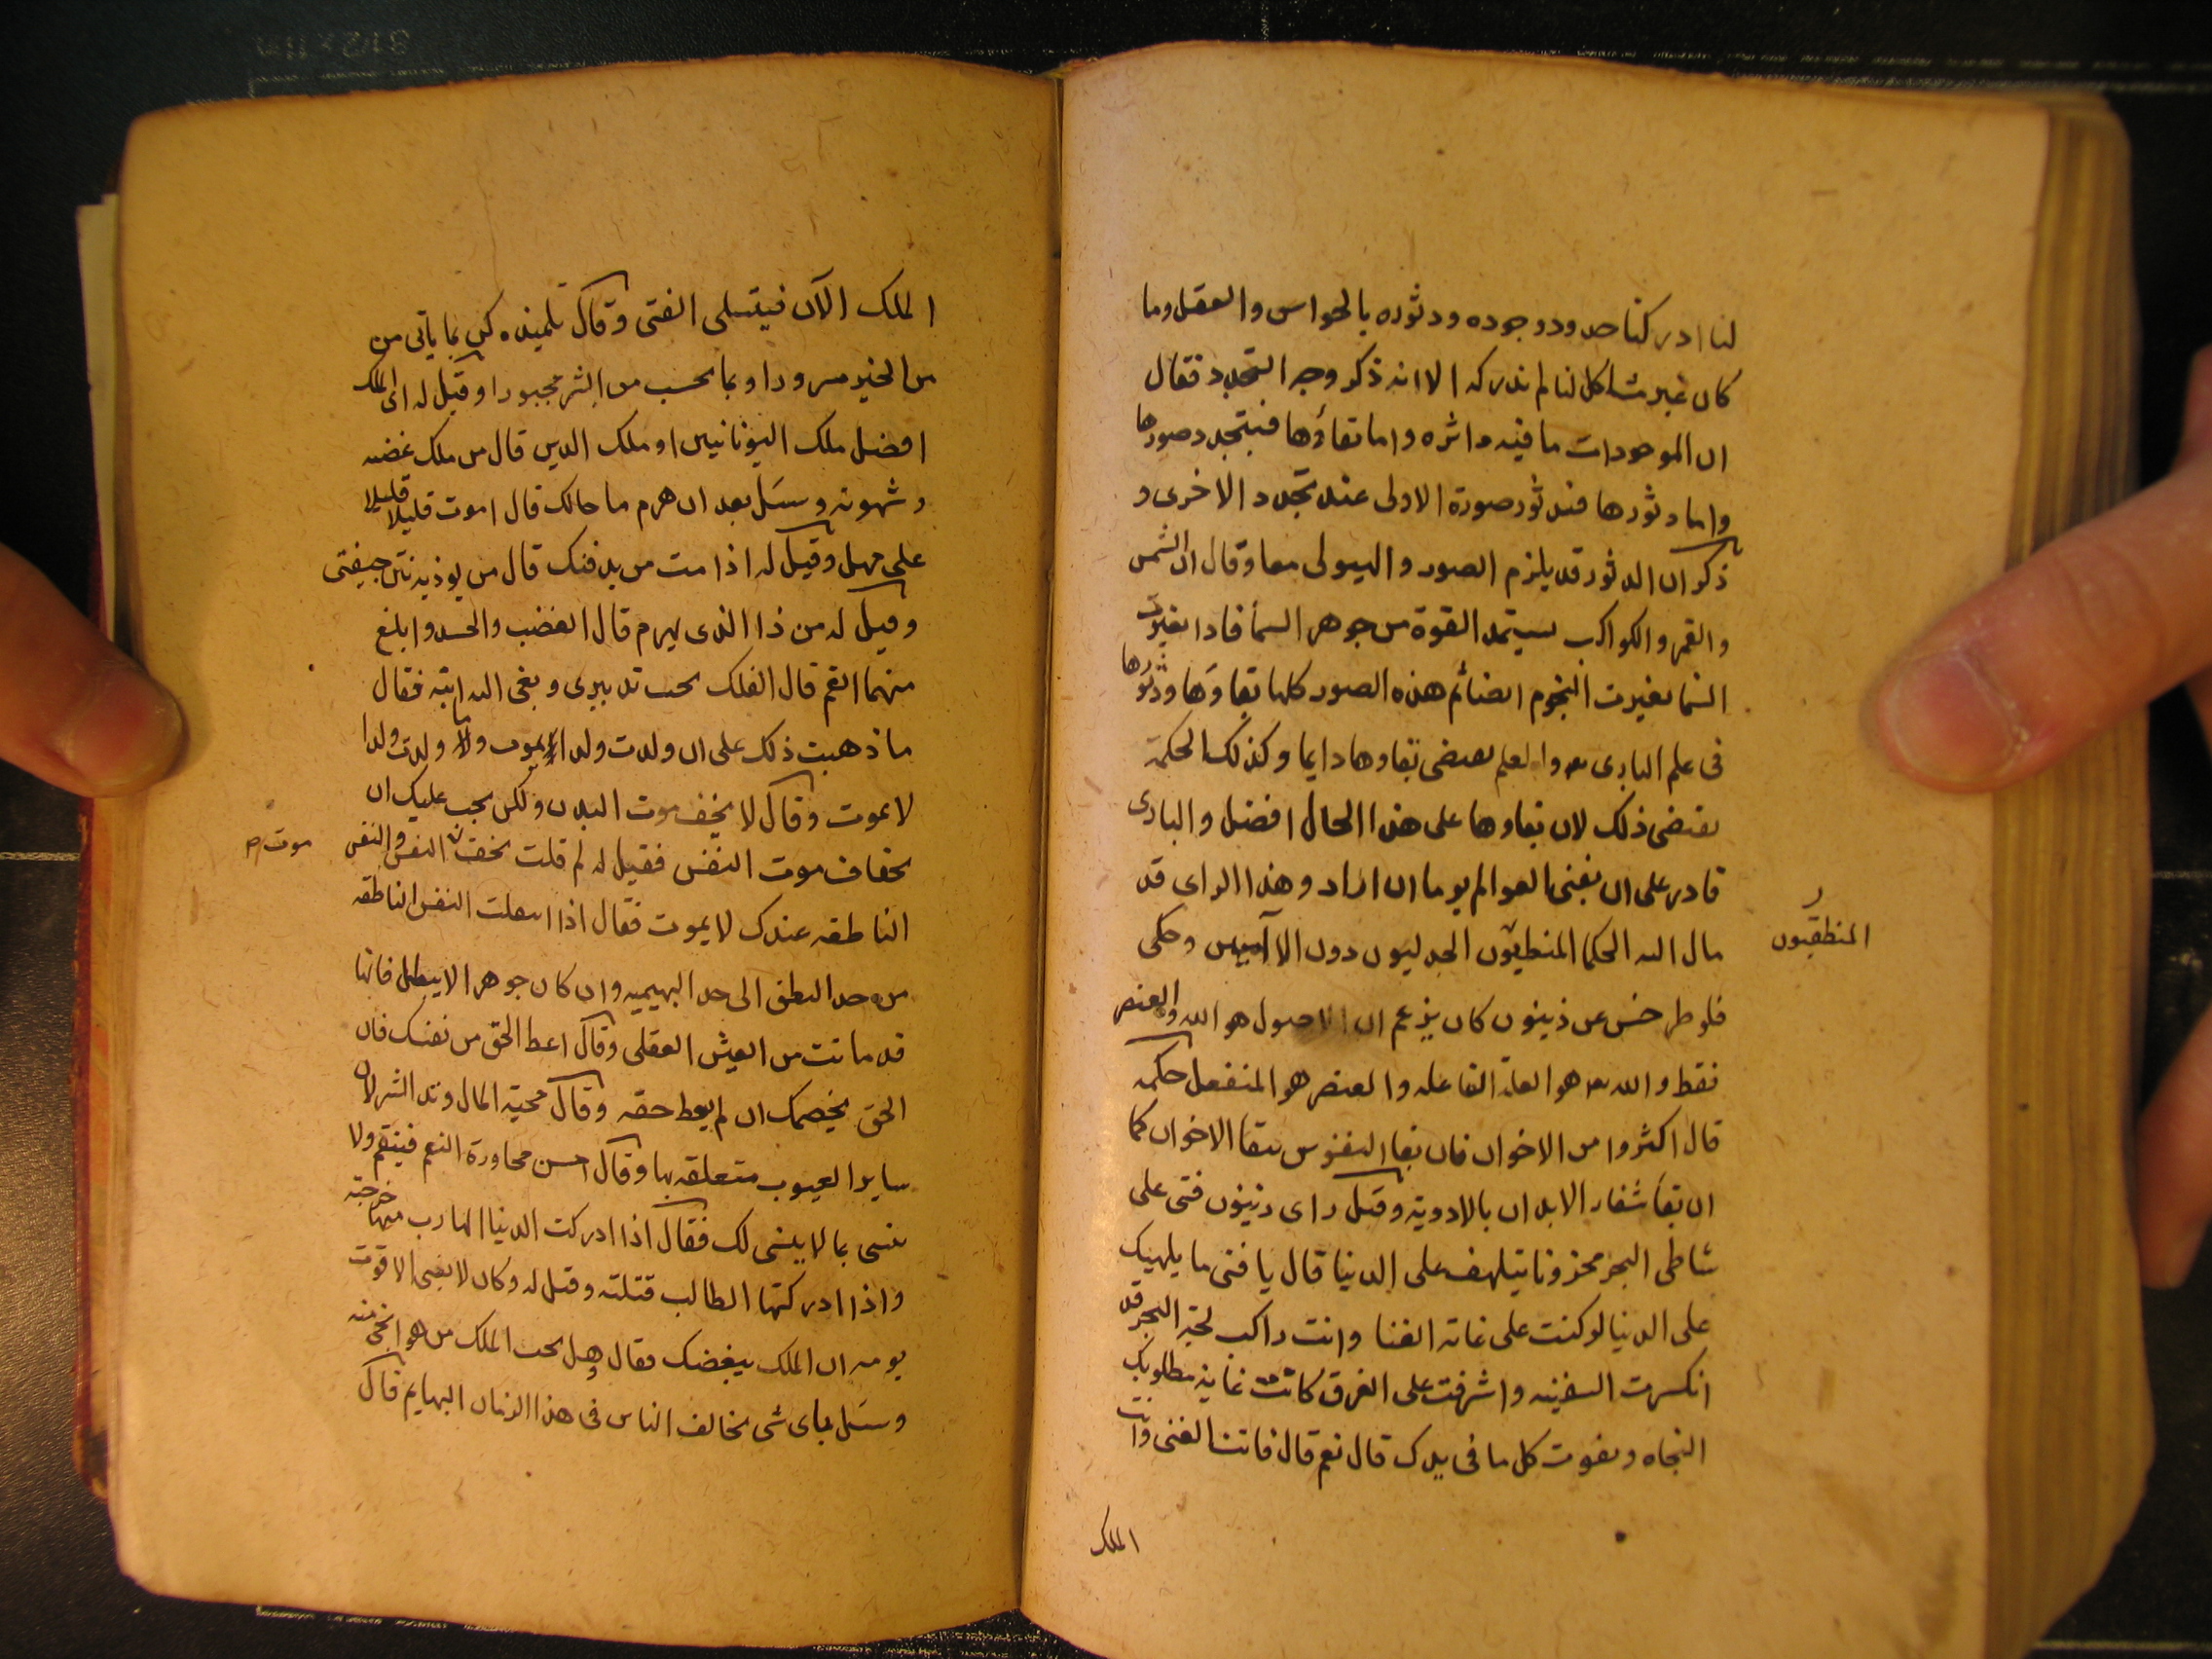 لنا ادركنا حدود وجوده ودثوره بالحواس والعقل وما
كان غير مشاكل لنا لم ندركه الا انه ذكر وجه التجدد فقال
ان الموجودات باقيه داثره واما بقاؤها فبتجدد صورها
واما دثورها فبدثور صورة الاولى عند تجدد الاخرى و
ذكر ان الدثور قد يلزم الصور والهيولى معا وقال ان الشمس
والقمر والكواكب يستمد القوة من جوهر السما فاذا تغيرت
السما تغيرت النجوم ايضا ثم هذه الصور كلها بقاؤها ودثورها
فى علم البارى تعـ والعلم يقتضى بقاوها دايما وكذلك الحكمة
يقتضى ذلك لان بقاوها على هذا الحال افضل والبارى
قادر على ان يفنى العوالم يوما ان اراد وهذا الراى قد
مال اليه الحكما المنطقيون الجدليون دون الالهيين وحكى
المنطقيون
فلوطرخس عن ذينون كان يزعم ان الاصول هو الله والعنصر
فقط والله تعـ هو العلة الفاعله والعنصر هو المنفعل حكمه
قال اكثروا من الاخوان فان بقا النفوس ببقا الاخوان كما
ان بقا شفاء الابدان بالادوية وقيل راى زينون فتى على
شاطى البحر محزونا يتلهف على الدنيا قال يا فتى ما يلهيك
على الدنيا لو كنت على غاية الغنا وانت راكب لجة البحر قد
انكسرت السفينه واشرفت على الغرق كانت غاية مطلوبك
النجاه ويفوت كل ما فى يدك قال نعم قال فانت الغنى وانت
الملك
الملك الآن فيتسلى الفتى وقال لتلميذه كن بما ياتى من
من الخير مسرورا وبما يحسب من الشر محبورا وقيل له اى الملك
افضل ملك اليونانيين او ملك الدين قال من ملك غضبه
وشهوته وسئل بعد ان هرم ما حالك قال اموت قليلا قليلا
على مهل وقيل له اذا مت من يدفنك قال من يوذيه نتن جيفتى
وقيل له من ذا الذى يهرم قال الغضب والحسد وابلغ
منهما الغم قال الفلك تحت تدبيرى ونعى اليه ابنه فقال
ما ذهبت ذلك على ان ولدت ولدا يموت ولا ولدت ولدا
لا يموت وقال لا تخف موت البدن ولكن يجب عليك ان
تخاف موت النفس فقيل له لم قلت تخف النفس والنفس
موت صح
الناطقه عندك لا يموت فقال اذا انتقلت النفس الناطقه
من حد النطق الى حد البهيميه وان كان جوهرا لا يبطل فانها
قد ماتت من العيش العقلى وقال اعط الحق من نفسك فان
الحق يخصمك ان لم يعط حقه وقال محبة المال وتد الشر لان
ساير العيوب متعلقه بها وقال احسن مجاورة النعم فينعم ولا
تنسى بما لا ينسى لك فقال اذا ادركت الدنيا الهارب منها جرحته
واذا ادركتها الطالب قتلته وقيل له وكان لا يقنى الا قوت
يومه ان الملك يبغضك فقال هل يحب الملك من هو اغنى منه
وسئل باى شى يخالف الناس فى هذا الزمان البهايم قال